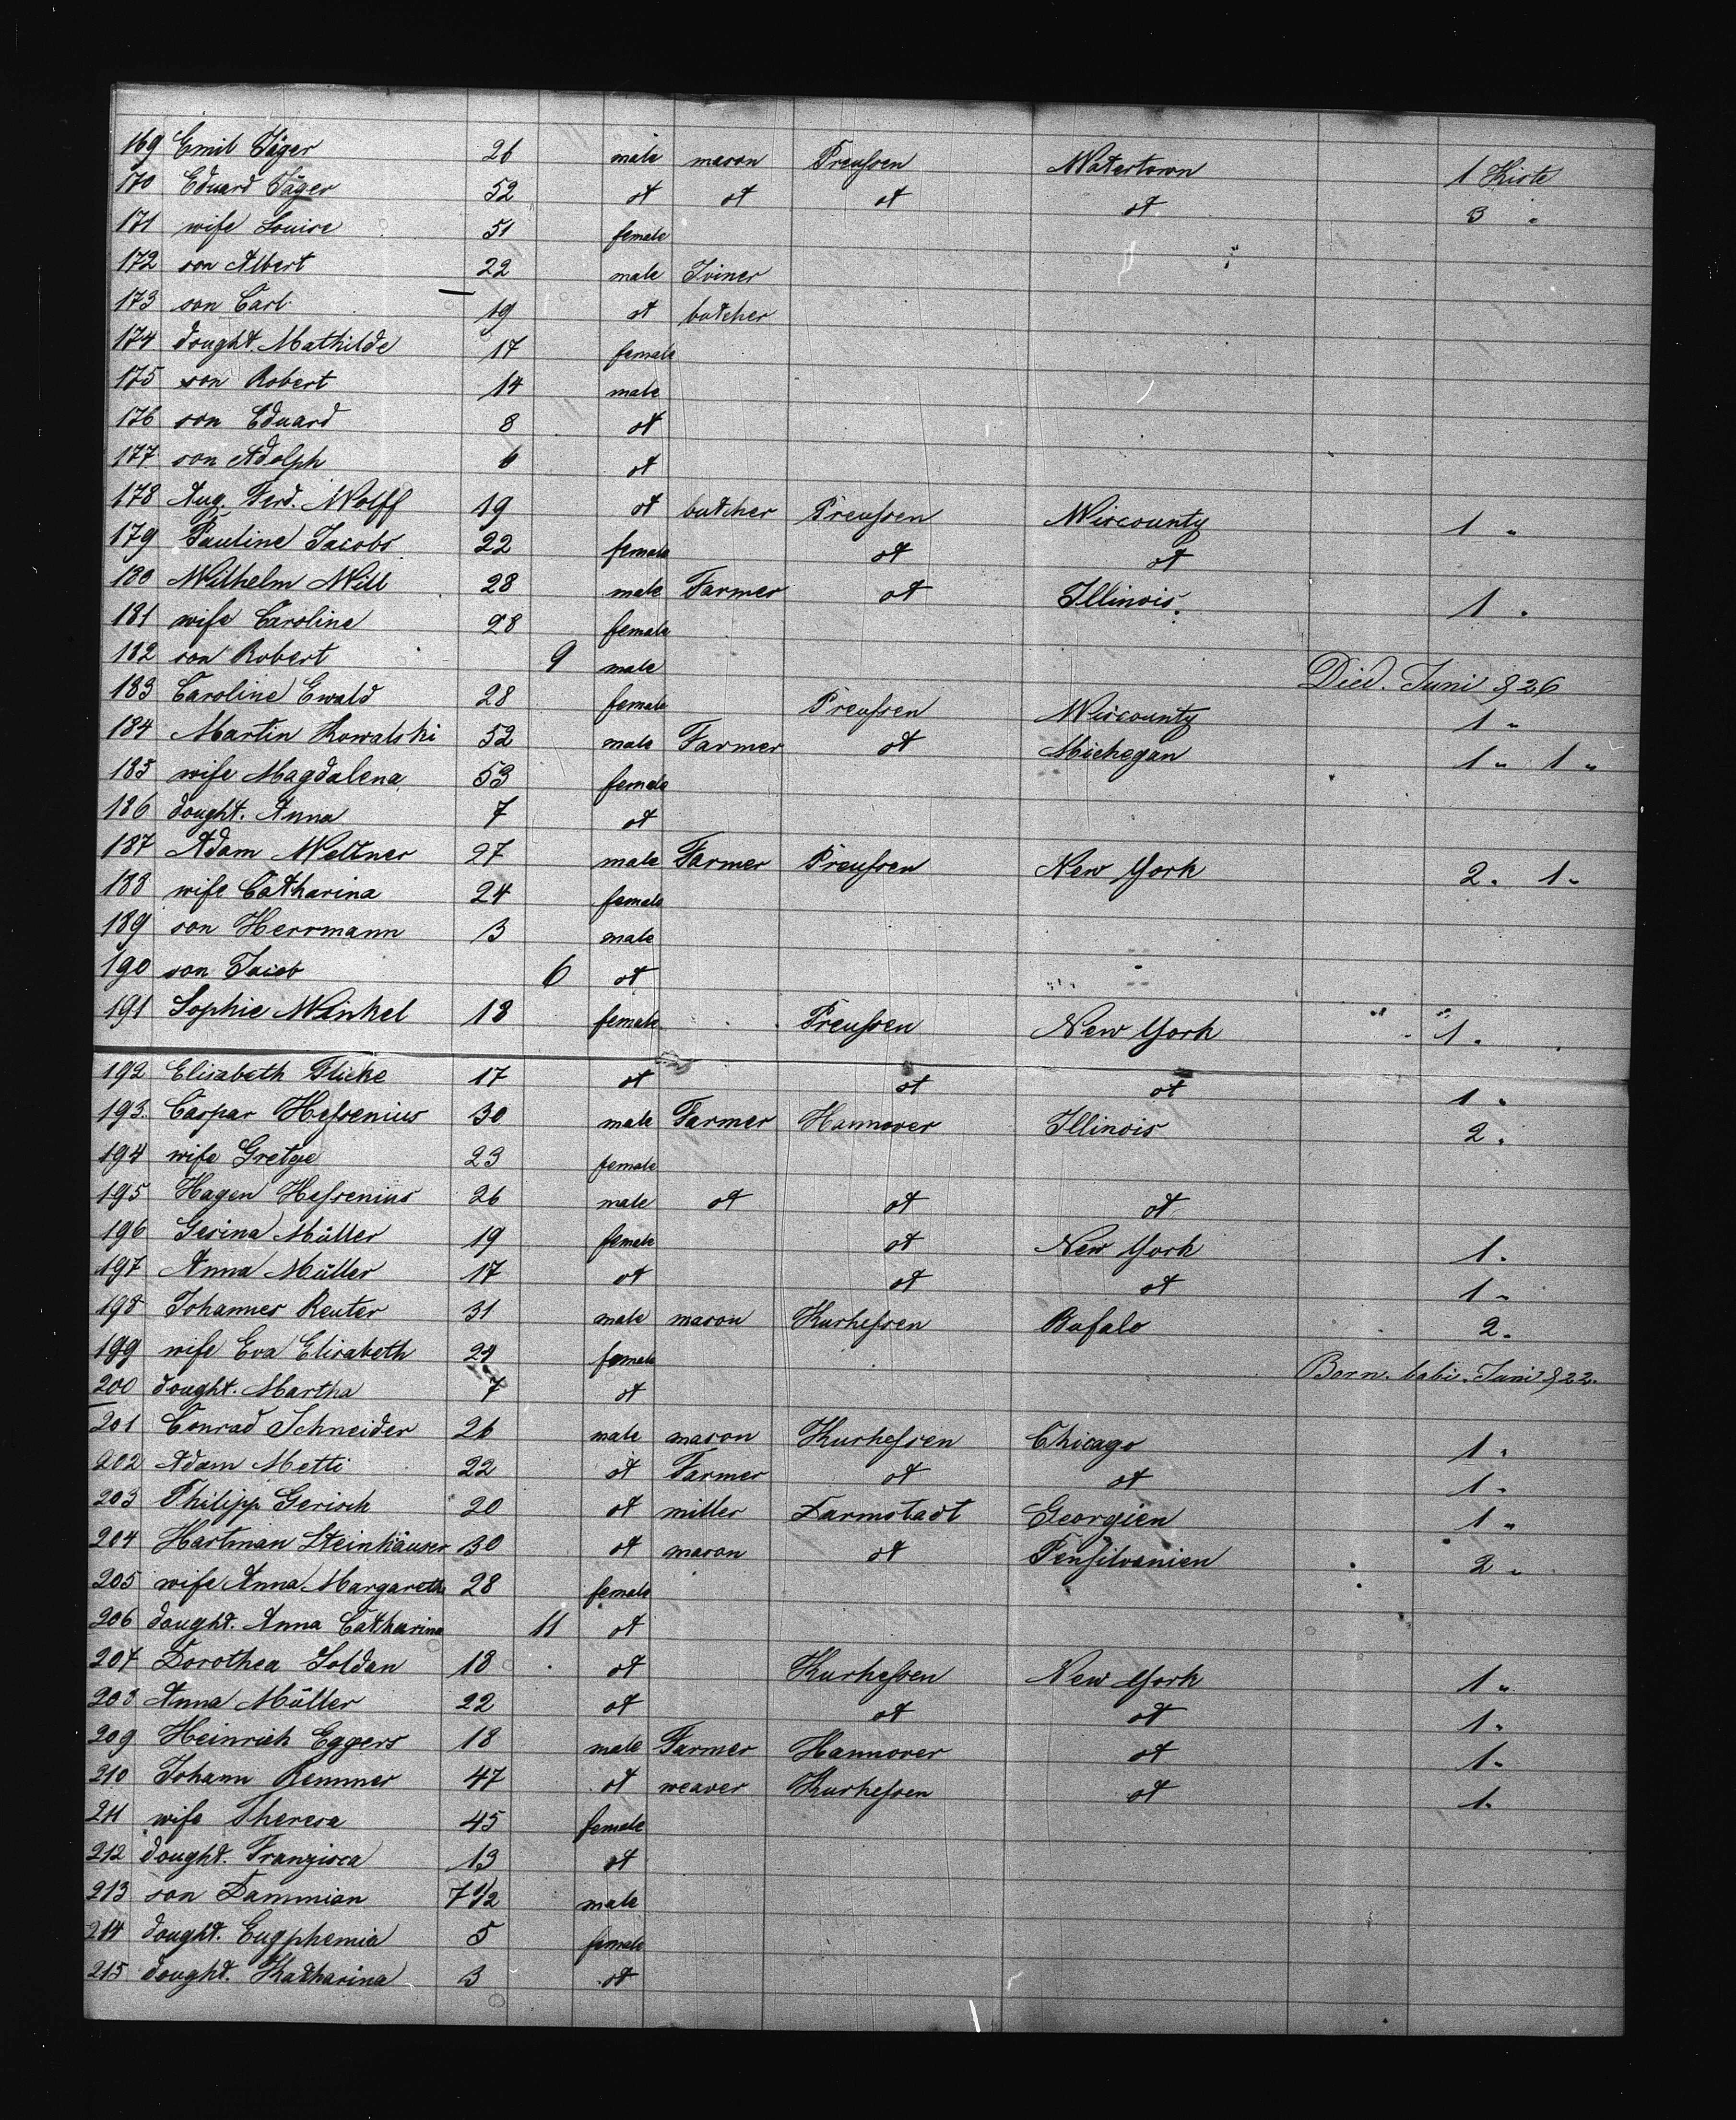 169 Emil Jäger 26 male mason Preußen Watertown 1 Kiste
170 Eduard Jäger 52 ot ot ot ot 3 "
171 wife Louise 51 female
172 son Albert 22 male Joiner
173 son Carl 19 ot butcher
174 dought. Mathilde 17 female
175 son Robert 14 male
176 son Eduard 8 ot
177 son Adolph 6 ot
178 Aug. Ferd. Wolff 19 ot butcher Preußen Wiscounty 1 "
179 Pauline Jacobs 22 female ot ot
180 Wilhelm Will 28 male Farmer ot Illinois 1 "
181 wife Caroline 28 female
182 son Robert 9 male Died. Juni § 26
183 Caroline Ewald 28 female Preußen Wiscounty 1 "
184 Martin Kowalski 52 male Farmer ot Michegan 1 " 1 "
185 wife Magdalena 53 female
186 dought. Anna 7 ot
187 Adam Weltner 27 male Farmer Preußen New York 2 " 1 "
188 wife Catharina 24 female
189 son Herrmann 3 male
190 son Jacob 6 ot
191 Sophie Winkel 18 female Preußen New York 1 "
192 Elisabeth Flicke 17 ot ot ot 1 "
193. Caspar Heßenius 30 male Farmer Hannover Illinois 2 "
194 wife Gretge 23 female
195 Hagen Heßenius 26 male ot ot ot
196 Gesina Müller 19 female ot New York 1 "
197 Anna Müller 17 ot ot ot 1 "
198 Johannes Reuter 31 male mason Kurheßen Bufalo 2 "
199 wife Eva Elisabeth 24 female Born. babi. Juni § 22.
200 dought. Martha 7 ot
201 Conrad Schneider 26 male mason Kurheßen Chicago 1 "
202 Adam Metti 22 ot Farmer ot ot 1 "
203 Philipp Gerisch 20 ot miller Darmstadt Georgien 1 "
204 Hartman Steinhäuser 30 ot mason ot Pensilvanien 2 "
205 wife Anna Margareth 28 female
206 dought. Anna Catharina 11 ot
207 Dorothea Soldan 18 ot Kurheßen New York 1 "
208 Anna Müller 22 ot ot ot 1 "
209 Heinrich Eggers 18 male Farmer Hannover ot 1 "
210 Johann Remmer 47 ot weaver Kurheßen ot 1 "
211 wife Theresa 45 female
212 dought. Franzisca 13 ot
213 son Dammian 7 1/2 male
214 dought. Eugphemia 5 female
215 dought. Katharina 3 ot